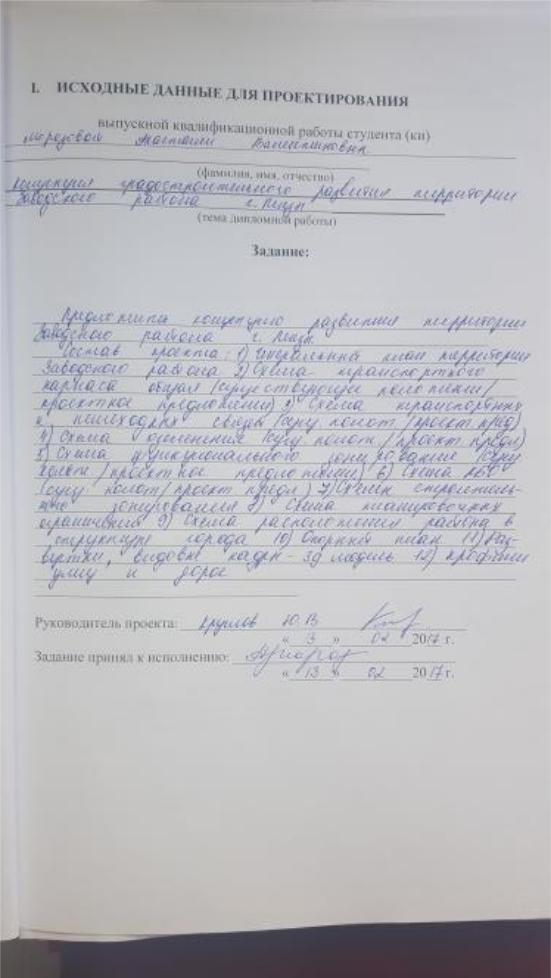 I. ИСХОДНЫЕ ДАННЫЕ ДЛЯ ПРОЕКТИРОВАНИЯ
выпускной квалификационной работы студента (ки)
Морозовой Анастасии Валентиновны
(фамилия, имя, отчество)
Концепция градостроительного развития территории
Заводского района г. Пензы
(тема дипломной работы)
Задание:
Предложить концепцию развития территории
Заводского района г. Пензы
Состав проекта: 1) Генеральный план территории
Заводского района 2) Схема транспортного
каркаса общая (существующее положение/
проектное предложение) 3) Схема транспортных
и пешеходных связей (сущ полож/проект пред)
4) Схема озеленения (сущ полож/проект предл)
5) Схема функционального зонирования (сущ
полож/проектное предложение) 6) Схема КБО
(сущ полож/проект предл) 7) Схема строитель-
ного зонирования 8) Схема планировочных
ограничений 9) Схема расположения района в
структуре города 10) Опорный план 11) Раз-
вертки, видовые кадры - 3д модель 12) профили
улиц и дорог
Руководитель проекта: Круглов Ю.В
« 3 » 02 2017 г.
Задание принял к исполнению:
« 13 » 02 2017 г.